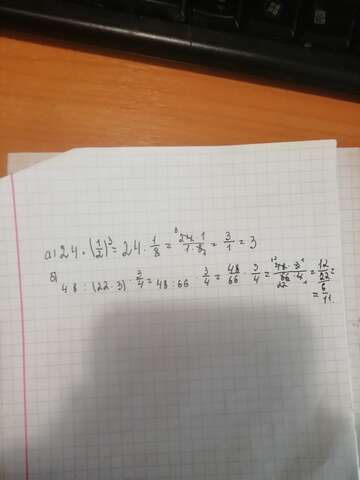 а) 24 · (1/2)³ = 24 · 1/8 = 24 · 1/1 · 8 = 3/1 = 3
б)
48 : (22 · 3) · 3/4 = 48 : 66 · 3/4 = 48/66 · 3/4 = 48 · 3/66 · 4 = 12/22 =
= 6/11.